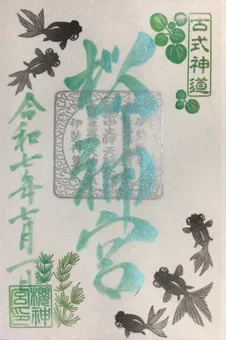 古式神道
桜神宮
令和七年七月一日
櫻神宮印